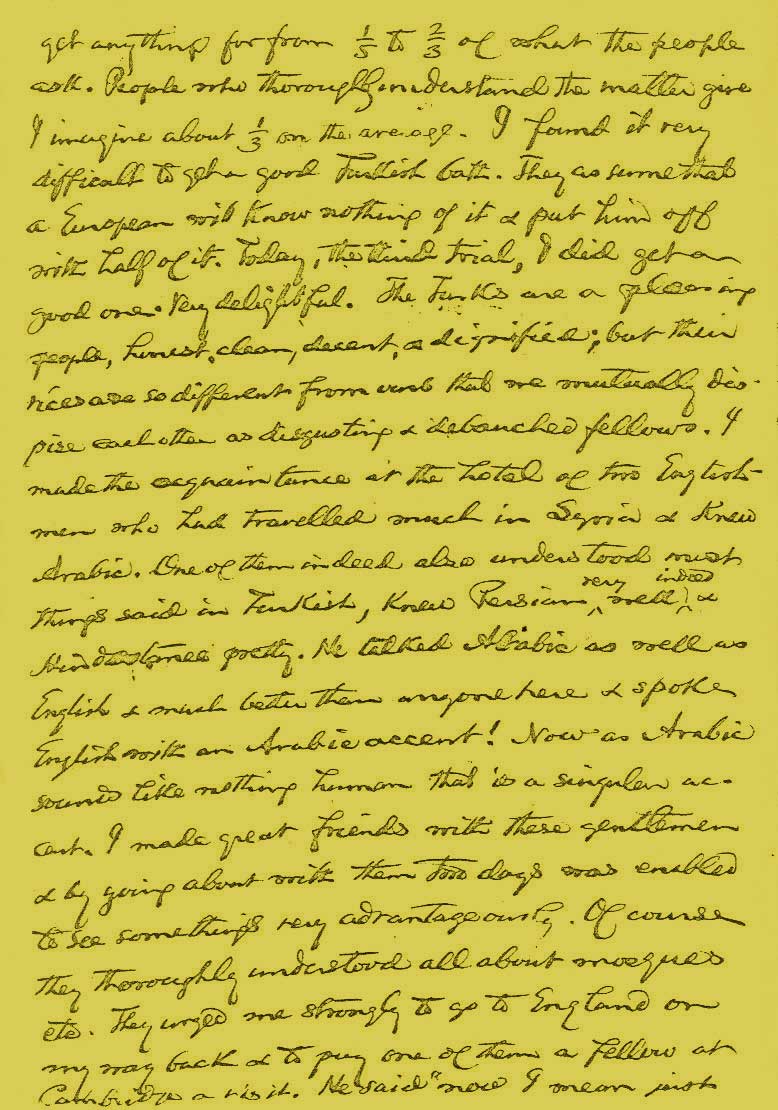 get anything for from 1/5 to 2/3 of what the people
ask. People who thoroughly understand the matter give
I imagine about 1/3 on the average. I found it very
difficult to get a good Turkish bath. They assume that
a European will know nothing of it & put him off
with half of it. Today, the third trial, I did get a
good one. Very delightful. The Turks are a pleasing
people, honest, clean, decent, & dignified; but their
vices are so different from ours that we mutually des-
pise each other as disgusting & debauched fellows. I
made the acquaintance at the hotel of two English-
men who had travelled much in Syria & knew
Arabic. One of them indeed also understood most
things said in Turkish, knew Persian very well indeed &
Hindostanee pretty. He talked Arabic as well as
English & much better than anyone here & spoke
English with an Arabic accent! Now as Arabic
sounds like nothing human that is a singular ac-
cent. I made great friends with these gentlemen
& by going about with them two days was enabled
to see somethings very advantageously. Of course
they thoroughly understood all about mosques
etc. They urged me strongly to go to England on
my way back & to pay one of them a fellow at
Cambridge a visit. He said "now I mean just